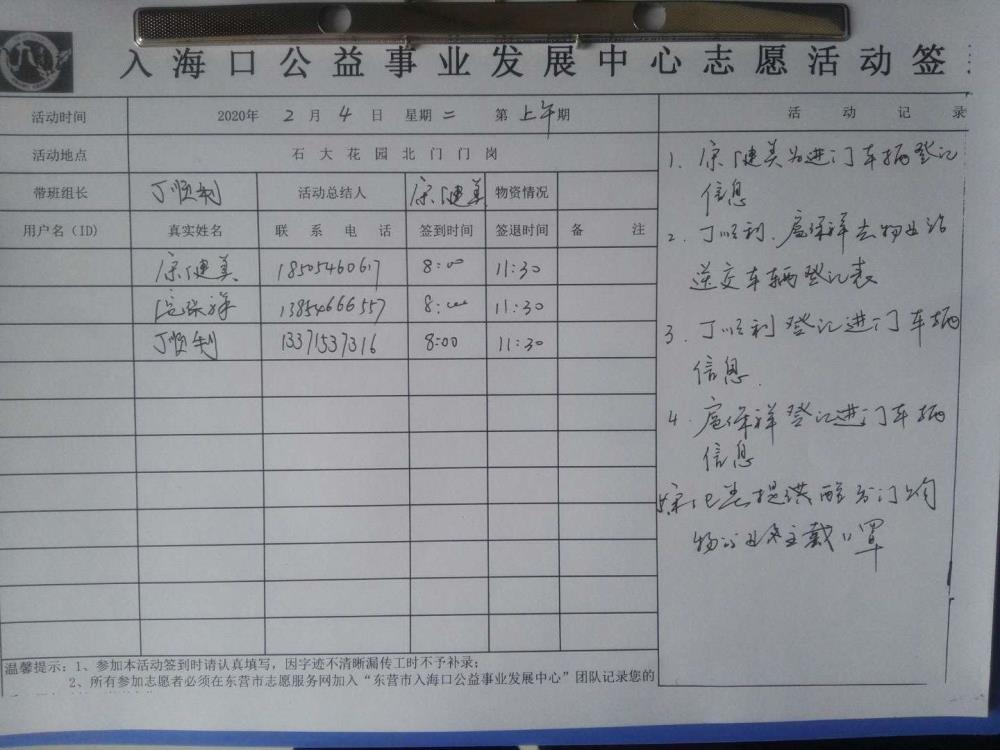 入海口公益事业发展中心志愿活动签
活动时间 2020年 2 月 4 日 星期 二 第 上午 期 活动记录
活动地点 石大花园北门门岗
带班组长 丁顺利 活动总结人 康健美 物资情况
用户名（ID） 真实姓名 联系电话 签到时间 签退时间 备注
康健美 18505460617 8:00 11:30
扈保祥 13854666557 8:00 11:30
丁顺利 13371537316 8:00 11:30
1. 康健美为进门车辆登记
信息
2. 丁顺利、扈保祥去物业站
送交车辆登记表
3. 丁顺利登记进门车辆
信息.
4. 扈保祥登记进门车辆
信息
提醒
戴口罩
温馨提示：1、参加本活动签到时请认真填写，因字迹不清晰漏传工时不予补录；
2、所有参加志愿者必须在东营市志愿服务网加入“东营市入海口公益事业发展中心”团队记录您的